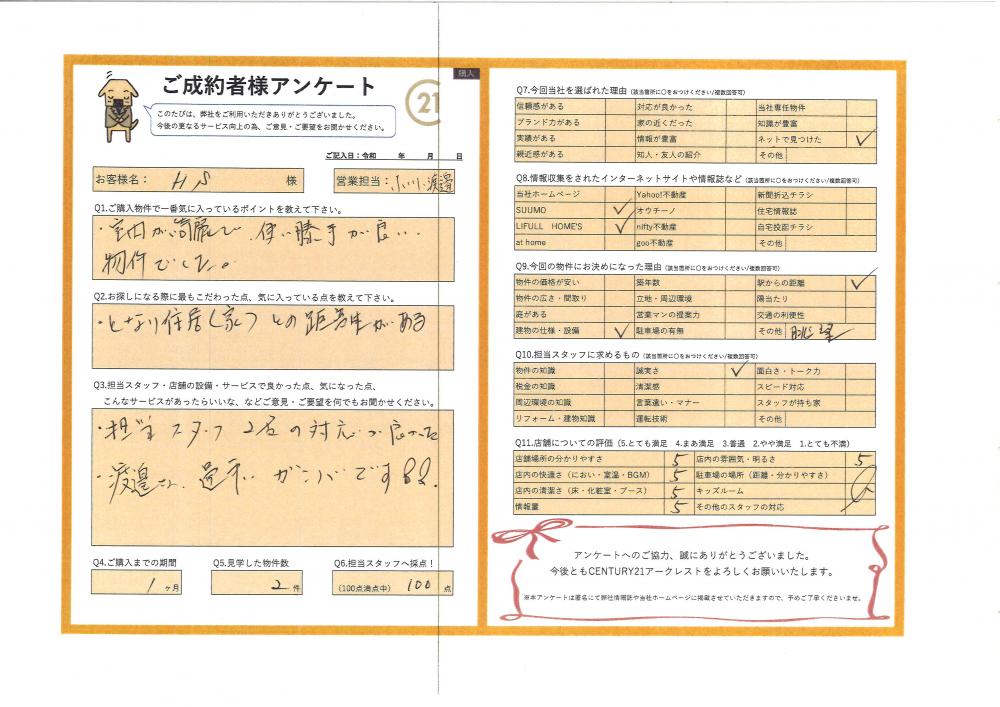 購入
ご成約者様アンケート
21
このたびは、弊社をご利用いただきありがとうございました。
今後の更なるサービス向上の為、ご意見・ご要望をお聞かせください。
ご記入日：令和 年 月 日
お客様名： H S 様
営業担当：小川・渡邉
Q1.ご購入物件で一番気に入っているポイントを教えて下さい。
・室内が綺麗で、使い勝手が良い
物件でした。
Q2.お探しになる際に最もこだわった点、気に入っている点を教えて下さい。
・となり住居(家)との距離がある
Q3.担当スタッフ・店舗の設備・サービスで良かった点、気になった点、
こんなサービスがあったらいいな、などご意見・ご要望を何でもお聞かせください。
・担当スタッフ2名の対応が良かった
・渡邉さん ガンバです!!
Q4.ご購入までの期間
1 ヶ月
Q5.見学した物件数
2 件
Q6.担当スタッフへ採点！
(100点満点中) 100 点
Q7.今回当社を選ばれた理由 (該当箇所に〇をおつけください/複数回答可)
信頼感がある 対応が良かった 当社専任物件
ブランド力がある 家の近くだった 知識が豊富
実績がある 情報が豊富 ネットで見つけた ✓
親近感がある 知人・友人の紹介 その他
Q8.情報収集をされたインターネットサイトや情報誌など (該当箇所に〇をおつけください/複数回答可)
当社ホームページ Yahoo!不動産 新聞折込チラシ
SUUMO ✓ オウチーノ 住宅情報誌
LIFULL HOME'S ✓ nifty不動産 自宅投函チラシ
at home goo不動産 その他
Q9.今回の物件にお決めになった理由 (該当箇所に〇をおつけください/複数回答可)
物件の価格が安い 築年数 駅からの距離 ✓
物件の広さ・間取り 立地・周辺環境 陽当たり
庭がある 営業マンの提案力 交通の利便性
建物の仕様・設備 ✓ 駐車場の有無 その他 眺望
Q10.担当スタッフに求めるもの (該当箇所に〇をおつけください/複数回答可)
物件の知識 誠実さ ✓ 面白さ・トーク力
税金の知識 清潔感 スピード対応
周辺環境の知識 言葉遣い・マナー スタッフが持ち家
リフォーム・建物知識 運転技術 その他
Q11.店舗についての評価 (5.とても満足 4.まあ満足 3.普通 2.やや満足 1.とても不満)
店舗場所の分かりやすさ 5 店内の雰囲気・明るさ 5
店内の快適さ（におい・室温・BGM） 5 駐車場の場所（距離・分かりやすさ）
店内の清潔さ（床・化粧室・ブース） 5 キッズルーム
情報量 5 その他のスタッフの対応
アンケートへのご協力、誠にありがとうございました。
今後ともCENTURY21アークレストをよろしくお願いいたします。
※本アンケートは匿名にて弊社情報誌や当社ホームページに掲載させていただきますので、予めご了承くださいませ。